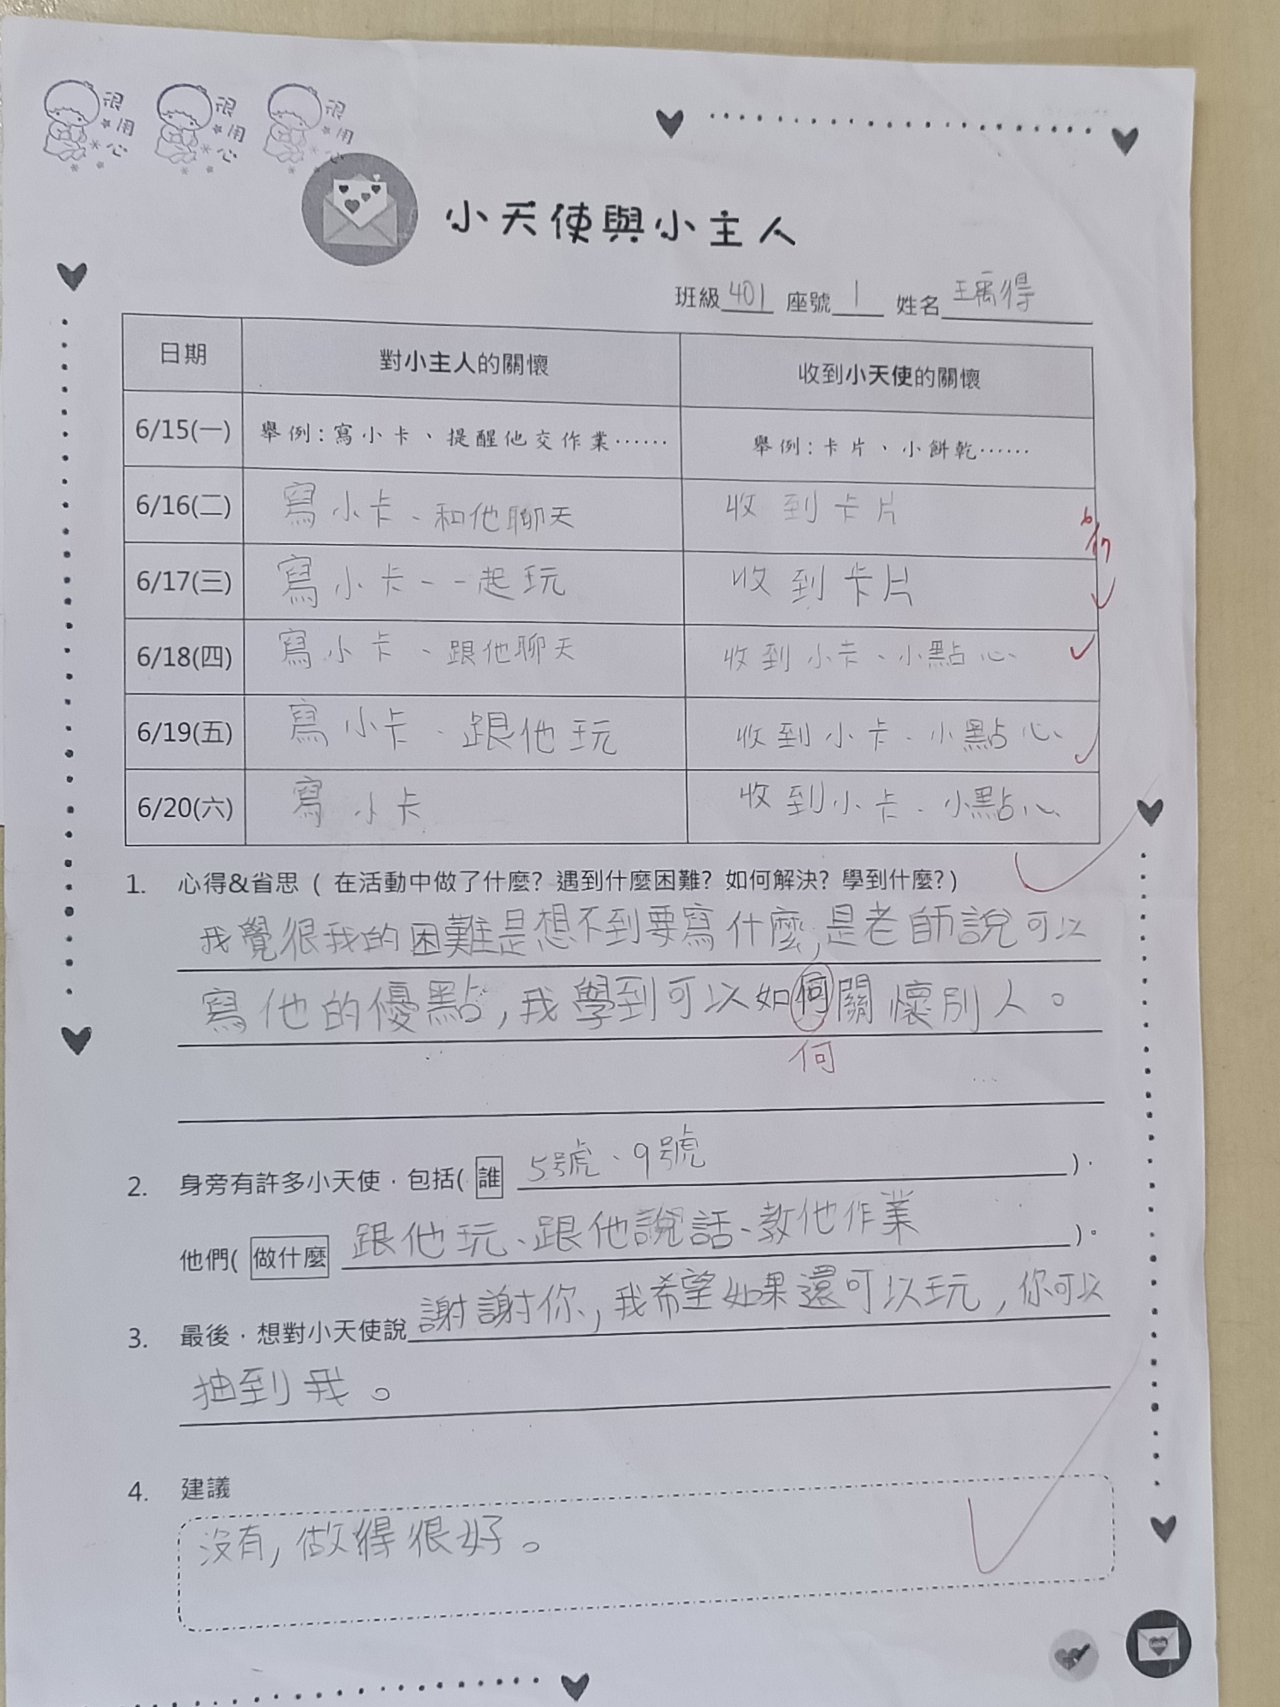 很用心 很用心 很用心
小天使與小主人
班級401 座號1 姓名王禹得
日期 對小主人的關懷 收到小天使的關懷
6/15(一) 舉例:寫小卡、提醒他交作業…… 舉例:卡片、小餅乾……
6/16(二) 寫小卡、和他聊天 收到卡片
6/17
6/17(三) 寫小卡、一起玩 收到卡片
6/18(四) 寫小卡、跟他聊天 收到小卡、小點心
6/19(五) 寫小卡、跟他玩 收到小卡、小點心
6/20(六) 寫小卡 收到小卡、小點心
1. 心得&省思 ( 在活動中做了什麼? 遇到什麼困難? 如何解決? 學到什麼?)
我覺很我的困難是想不到要寫什麼,是老師說可以
寫他的優點,我學到可以如何關懷別人。
何
2. 身旁有許多小天使,包括( 誰 5號、9號 ),
他們( 做什麼 跟他玩、跟他說話、教他作業 )。
3. 最後,想對小天使說謝謝你,我希望如果還可以玩,你可以
抽到我。
4. 建議
沒有,做得很好。